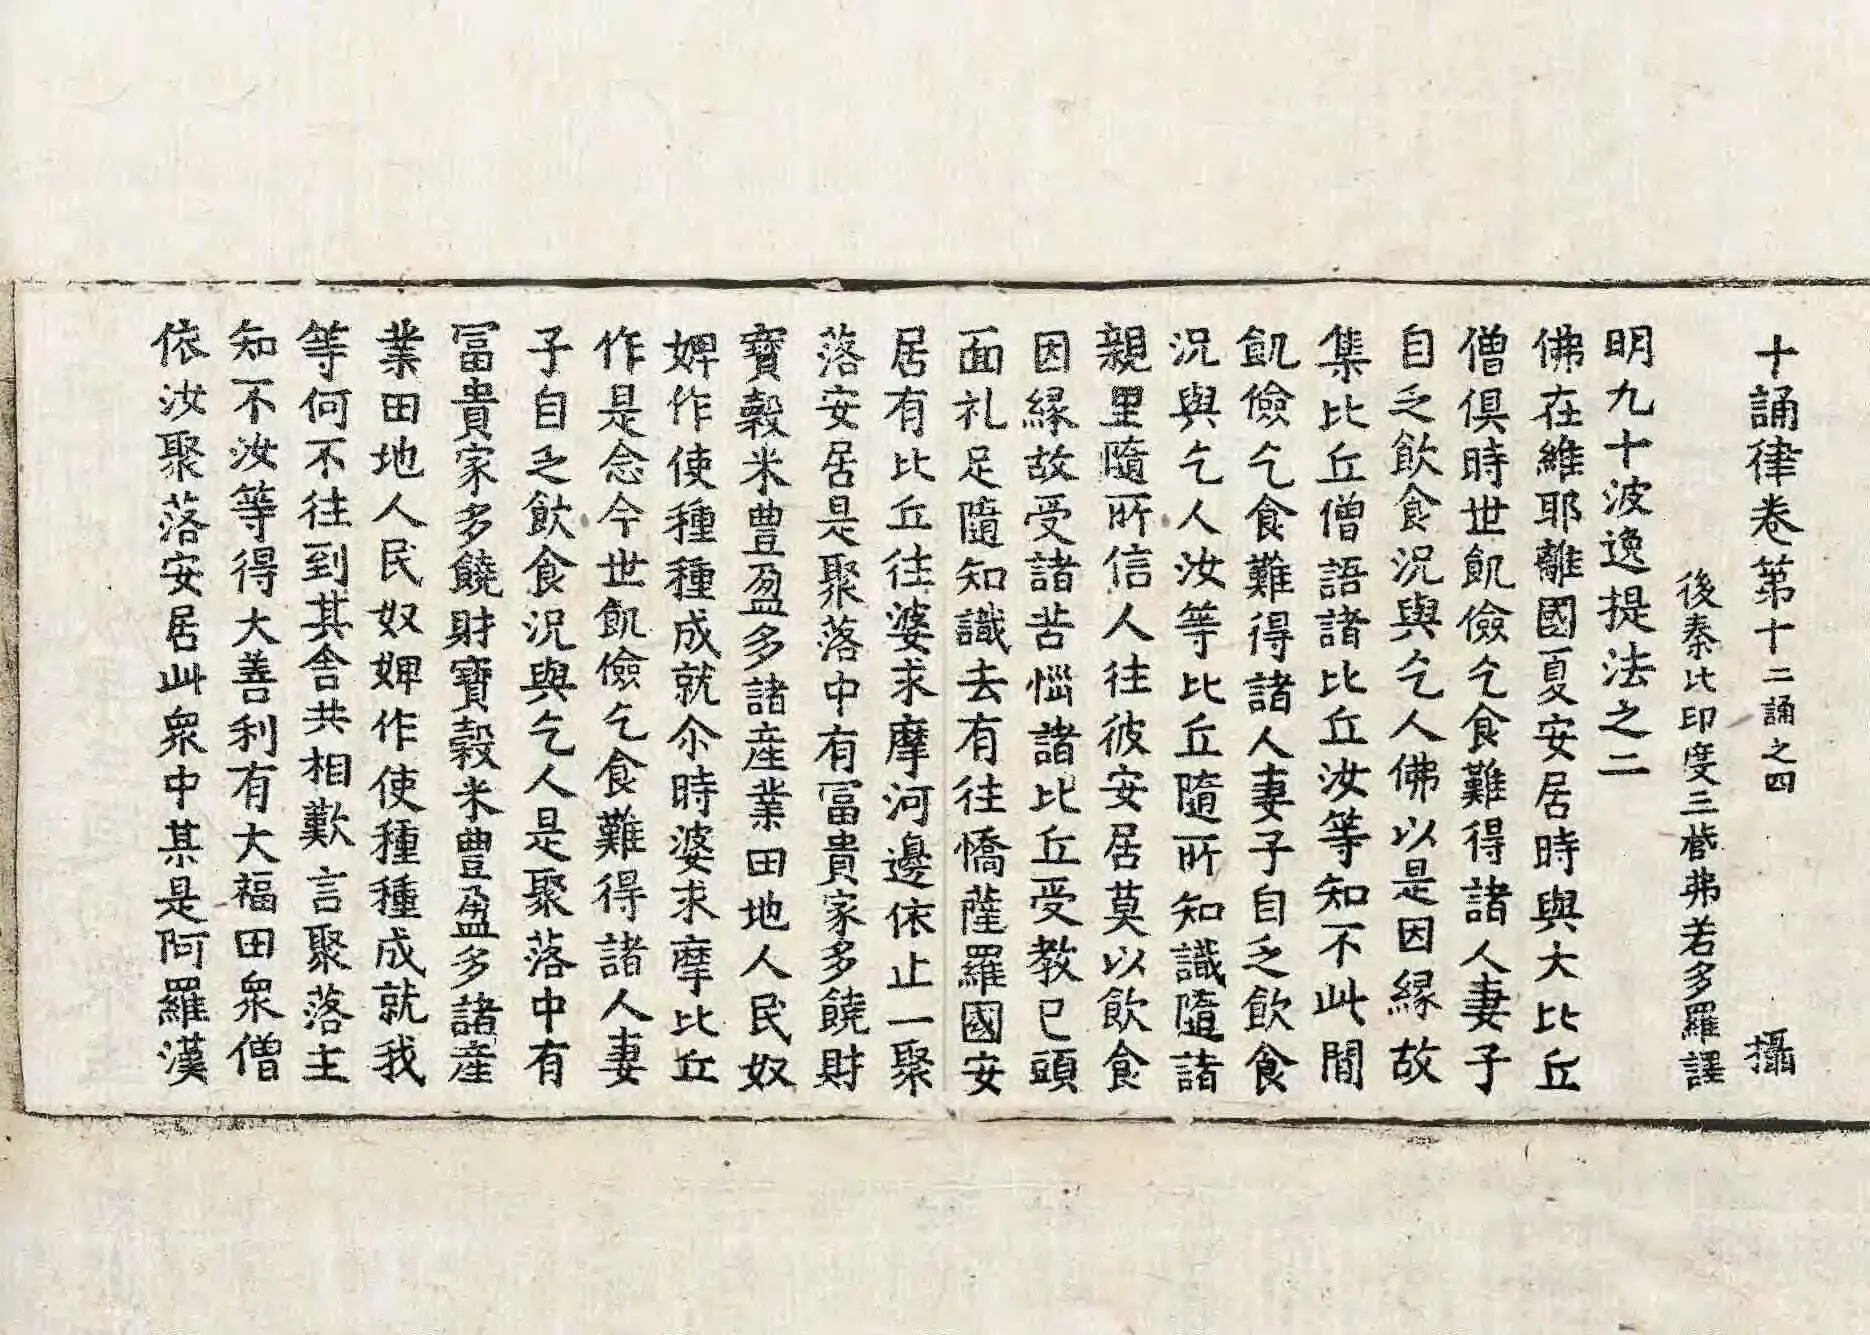 十誦律卷第十二誦之四 攝
後秦北印度三藏弗若多羅譯
明九十波逸提法之二
佛在維耶離國夏安居時與大比丘
僧俱時世飢儉乞食難得諸人妻子
自乏飲食況與乞人佛以是因緣故
集比丘僧語諸比丘汝等知不此間
飢儉乞食難得諸人妻子自乏飲食
況與乞人汝等比丘隨所知識隨諸
親里隨所信人往彼安居莫以飲食
因緣故受諸苦惱諸比丘受教已頭
面礼足隨知識去有往憍薩羅國安
居有比丘往婆求摩河邊依止一聚
落安居是聚落中有冨貴家多饒財
寶穀米豊盈多諸產業田地人民奴
婢作使種種成就尒時婆求摩比丘
作是念今世飢儉乞食難得諸人妻
子自乏飲食況與乞人是聚落中有
冨貴家多饒財寶穀米豊盈多諸產
業田地人民奴婢作使種種成就我
等何不往到其舍共相歎言聚落主
知不汝等得大善利有大福田衆僧
依汝聚落安居此衆中某是阿羅漢